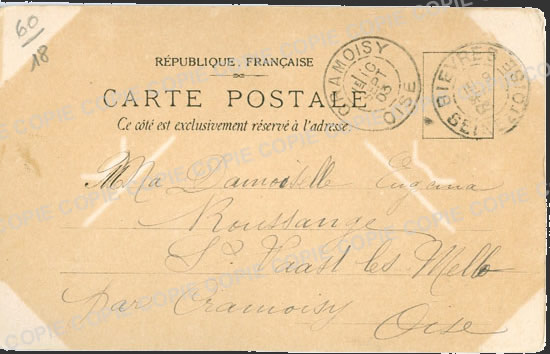 60
18
RÉPUBLIQUE FRANÇAISE
CARTE POSTALE
Ce côté est exclusivement réservé à l'adresse.
CRAMOISY
10
SEPT
03
OISE
BIEVRES
SEINE-ET-OISE
Ma Damoiselle Eugena
Roussange
St Vaast les Mello
Par Cramoisy
Oise
COPIE COPIE COPIE COPIE COPIE